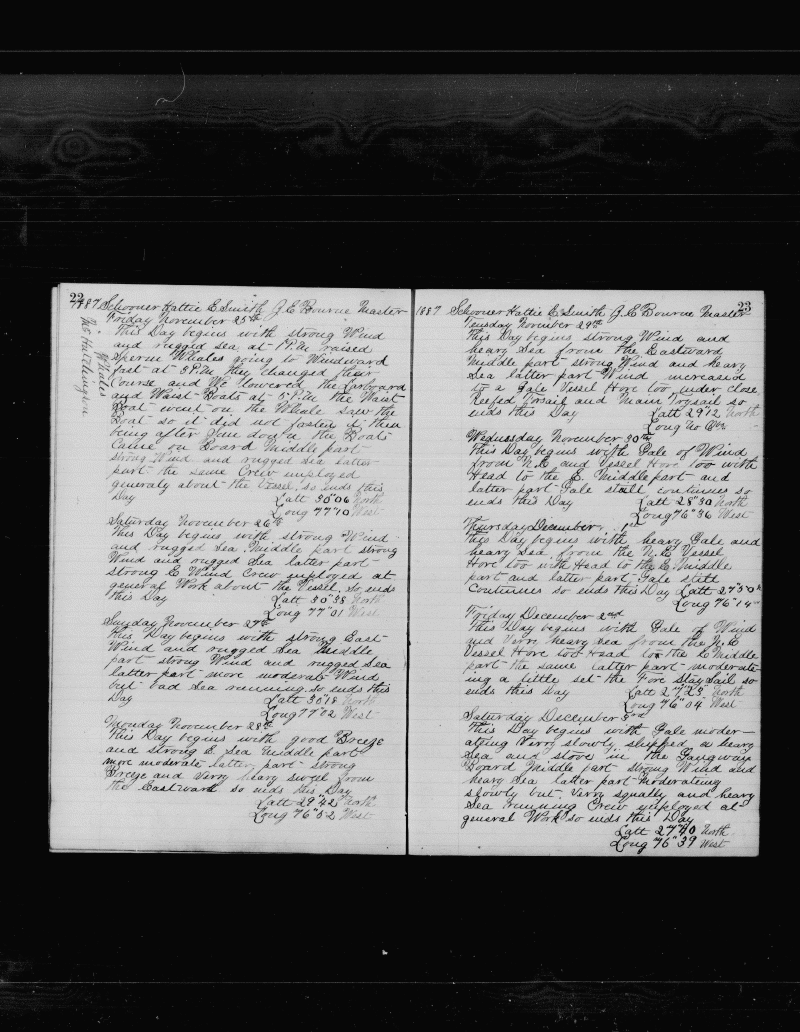 22
1887 Schooner Hattie E Smith J. E Bourne Master
Friday November 25th
This Day begins with strong Wind
and rugged sea at 1 P.M raised
Sperm Whales going to Windward
fast at 3 P.M they changed their
Course and We lowered the Larboard
and Waist Boats at 5 P.M the Waist
Boat went on the Whale saw the
Boat so it did not fasten it then
being after Sun down the Boats
Came on Board Middle part
strong Wind and rugged Sea latter
part the same Crew employed
generaly about the Vessel, so ends this
Day Latt 30"06 North
Long 77"10 West
Whales
Saturday November 26th
This Day begins with strong Wind
and rugged Sea Middle part strong
Wind and rugged Sea latter part
strong E Wind Crew employed at
general Work about the Vessel, so ends
this Day Latt 30"38 North
Long 77"01 West
Sunday November 27th
This Day begins with strong East
Wind and rugged Sea Middle
part strong Wind and rugged Sea
latter part more moderate Wind
but bad Sea running so ends this
Day Latt 30"18 North
Long 77"02 West
Monday November 28th
This Day begins with good Breeze
and strong E. Sea Middle part
more moderate latter part strong
Breeze and Verry heavy swell from
the Eastward so ends this Day
Latt 29"42 North
Long 76"52 West
23
1887 Schooner Hattie E Smith J. E Bourne Master
Tuesday November 29th
This Day begins strong Wind and
heavy Sea from the Eastward
Middle part strong Wind and heavy
Sea latter part Wind increased
to a Gale Vessel Hove too under close
Reefed Forsail and Main Trysail so
ends this Day Latt 29"12 North
Long No
Wednesday November 30th
This Day begins with Gale of Wind
from N.E and Vessel Hove too with
Head to the E. Middle part and
latter part Gale still continues so
ends this Day Latt 28"30 North
Long 76"36 West
Thursday December 1st
This Day begins with heavy Gale and
heavy Sea from the N.E Vessel
Hove too with Head to the E Middle
part and latter part Gale still
Continues so ends this Day Latt 27"50 N
Long 76"14 W
Friday December 2nd
This Day begins with Gale of Wind
and Verry heavy Sea from the N.E
Vessel Hove too Head to the E Middle
part the same latter part moderate-
ing a little set the Fore Stay Sail so
ends this Day Latt 27"23 North
Long 76"04 West
Saturday December 3rd
This Day begins with Gale moder-
ating Verry slowly shipped a heavy
Sea and stove in the Gangway
Board Middle part strong Wind and
heavy Sea latter part moderating
slowly but Verry squally and heavy
Sea running Crew employed at
general Work so ends this Day
Latt 27"40 North
Long 76"39 West